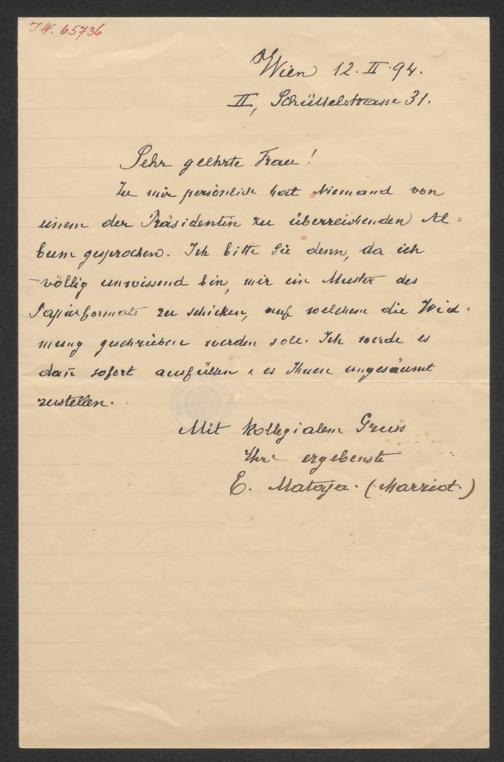 I.N. 65736
Wien 12. II. 94.
II, Schüttelstrasse 31.
Sehr geehrte Frau!
Zu mir persönlich hat Niemand von
einem der Präsidentin zu überreichenden Al=
bum gesprochen. Ich bitte Sie denn, da ich
völlig unwissend bin, mir ein Muster des
Papierformats zu schicken, auf welchem die Wid-
mung geschrieben werden soll. Ich werde es
dan̄ sofort ausfüllen u es Ihnen ungesäumt
zustellen.
Mit kollegialem Gruss
Ihre ergebenste
E. Mataja. (Marriot.)